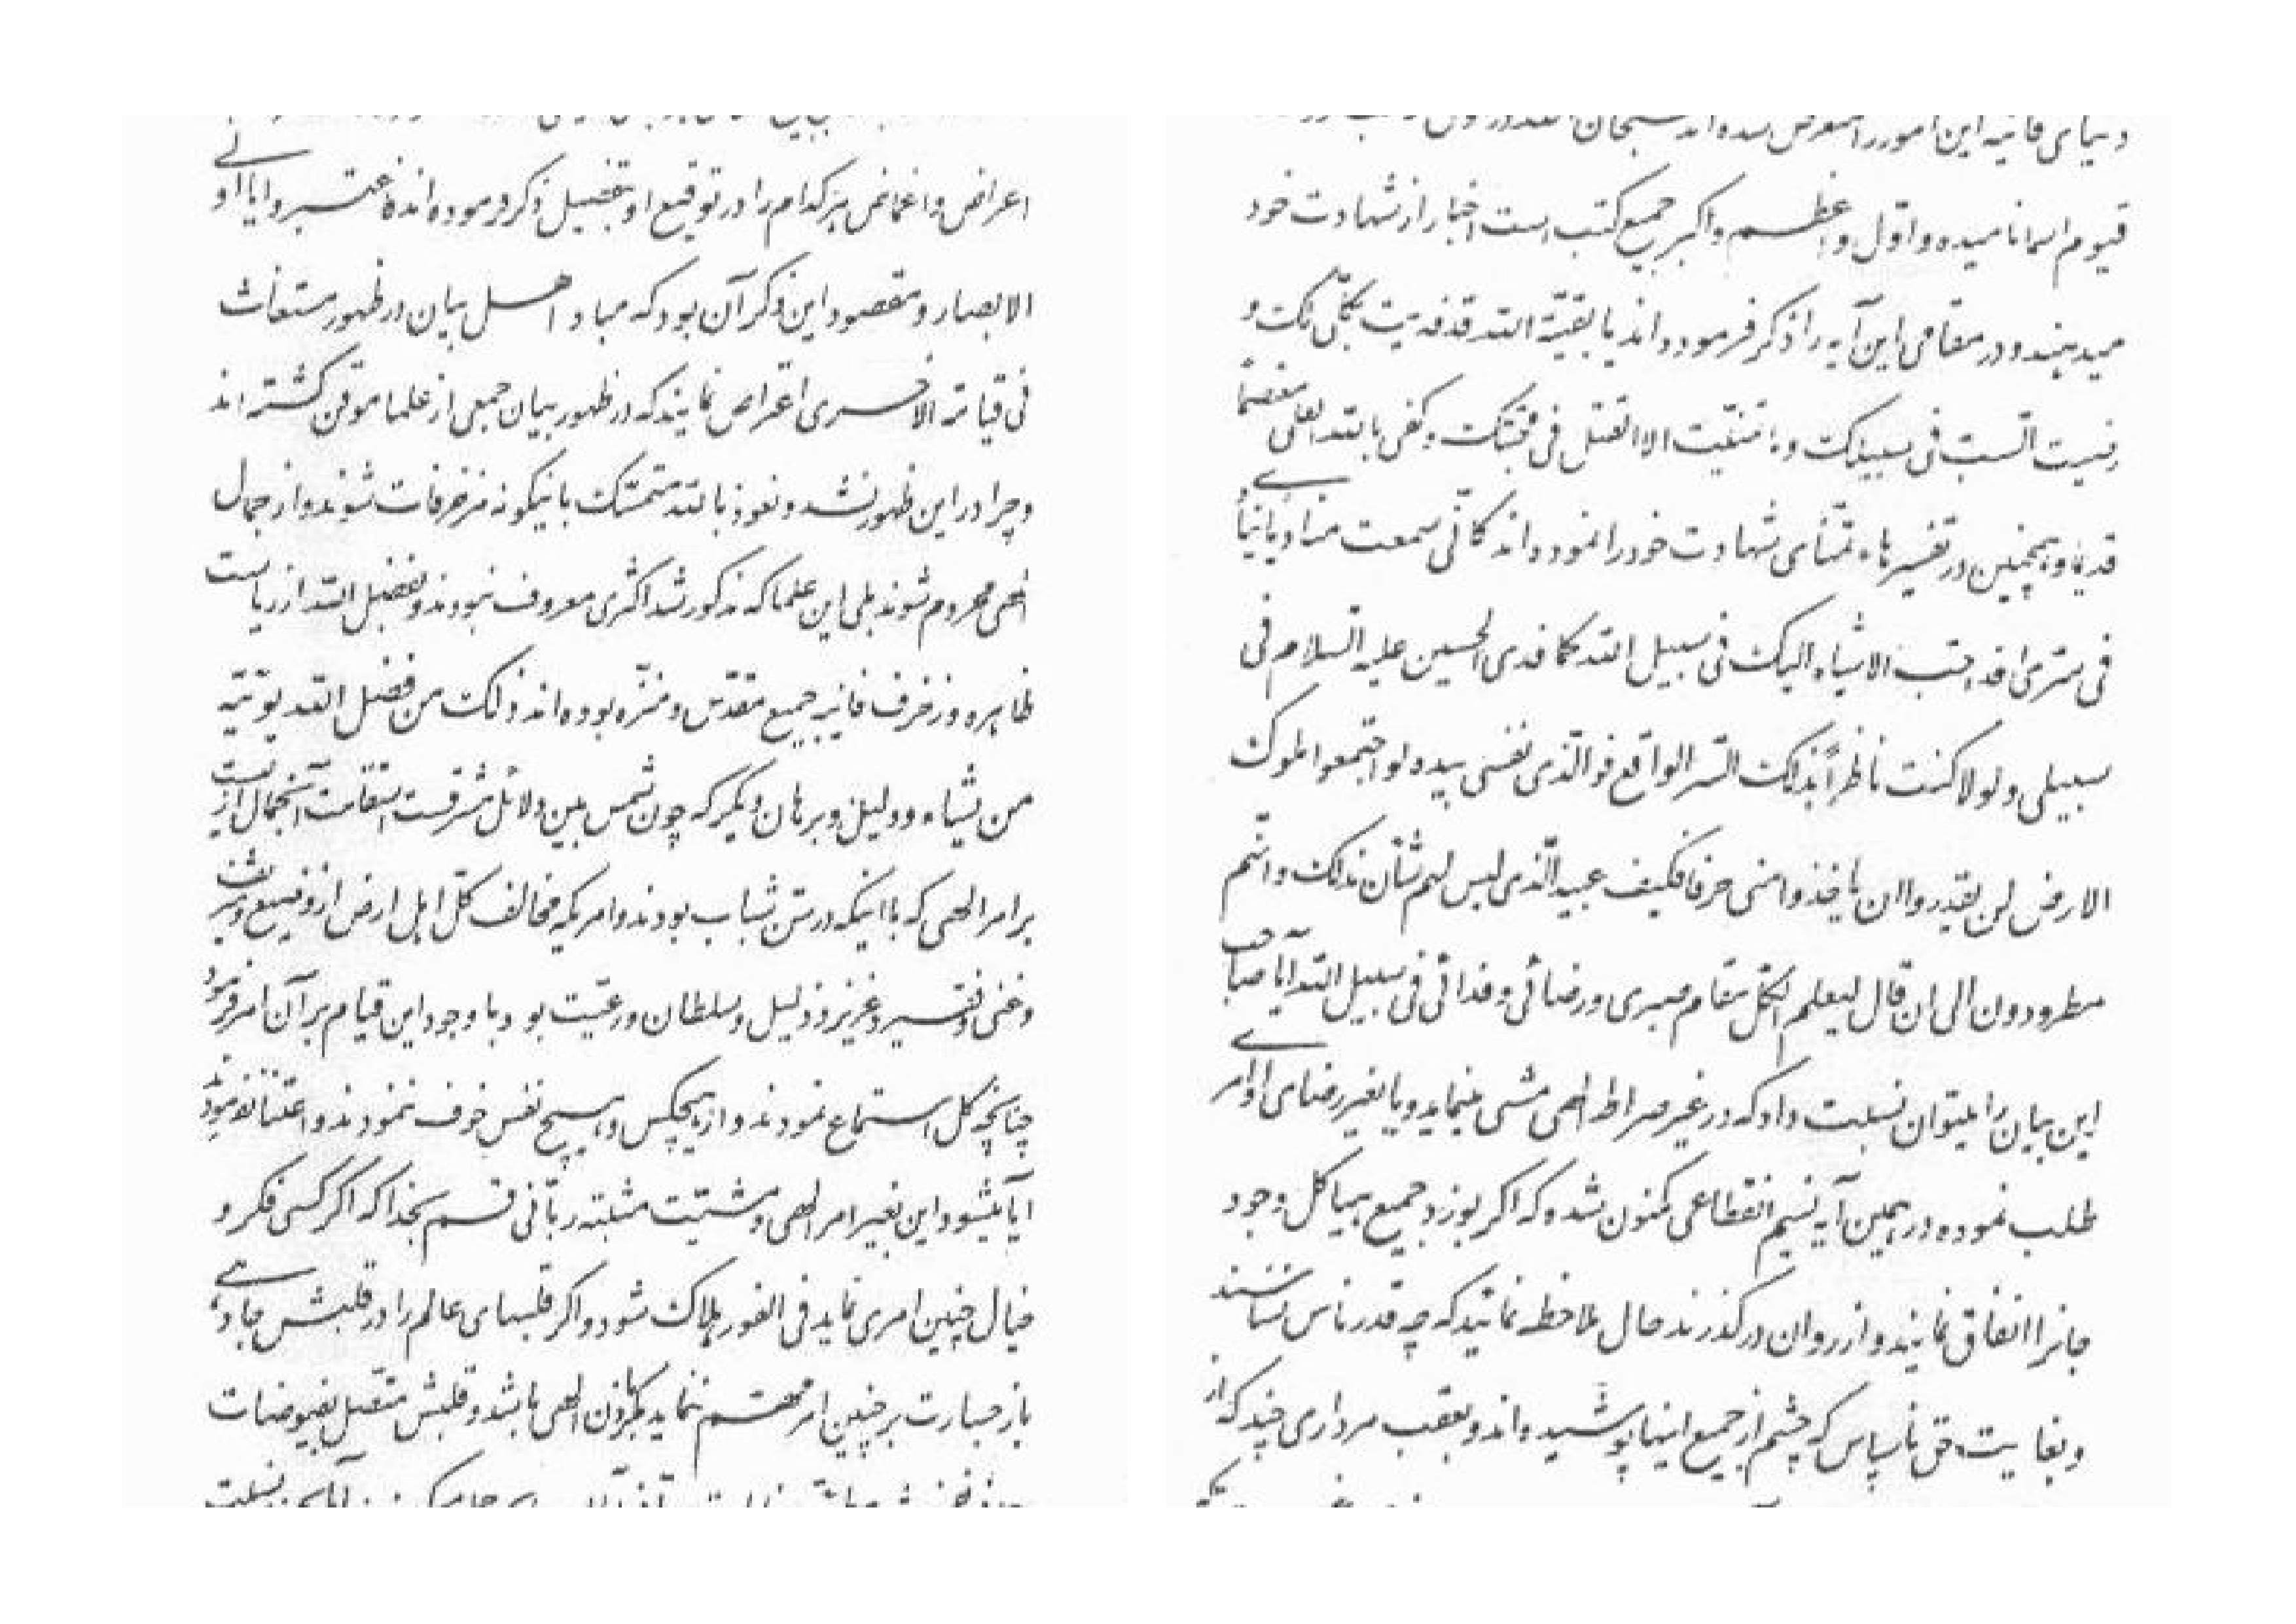 اعراض و اغماض هر کدام را در توقیع او بتفصیل ذکر فرموده اند فاعتبروا یا اولی
الابصار و مقصود این ذکر آن بود که مباد اهل بیان در ظهور مستغاث
فی قیامة الاخری اعتراض نمایند که در ظهور بیان جمعی از علما موقن کشته اند
و چرا در این ظهور نشد و نعوذ بالله متمسّک باینکونه مزخرفات شوند و از جمال
الهی محروم شوند بلی این علما که مذکور شد اکثری معروف نبودند و بفضل الله از ریاست
ظاهره و زخرف فانیه جمیع مقدّس و منزّه بوده اند ذلک من فضل الله یؤتیه
من یشاء و دلیل و برهان دیگر که چون شمس بین دلائل مشرقست استقامت آنجمال ازلیست
بر امر الهی که با اینکه در سنّ شباب بودند و امریکه مخالف کلّ اهل ارض از وضیع و شریف
و غنی و فقیر و عزیز و ذلیل و سلطان و رعیّت بود با وجود این قیام بر آن امر فرمود
چنانچه کل استماع نمودند و از هیچکس و هیچ نفس خوف ننمودند و اعتنا نفرمودند
آیا میشود این بغیر امر الهی و مشیّت مثبته ربّانی قسم بخدا که اگر کسی فکر و
خیال چنین امری نماید فی الفور هلاک شود و اگر قلبهای عالم را در قلبش جا دهی
باز جسارت بر چنین امر مهم ننماید مگر باذن الهی باشد و قلبش متّصل بفیوضات
دنیای فانیه این امور را متعرض شده اند سبحان الله در اول
قیوم اسما نامیده و اوّل و اعظم و اکبر جمیع کتب است اخبار از شهادت خود
میدهند و در مقامی این آیه را ذکر فرموده اند یا بقیّة الله قد فدیت بکلّی لک و
رضیت السّب فی سبیلک و ما تمنّیت الا القتل فی محبّتک و کفی بالله العلی معتصما
قدیما و همچنین در تفسیر هاء تمنّای شهادت خود را نموده اند کانّی سمعت منادیا ینادی
فی سرّی افد احب الاشیاء الیک فی سبیل الله کما فدی الحسین علیه السلام فی
سبیلی و لولا کنت ناظراً بذلک السّر الواقع فو الّذی نفسی بیده لو اجتمعوا ملوک
الارض لن یقدروا ان یاخذوا منی حرفا فکیف عبید الّذی لیس لهم شأن بذلک و انّهم
مطرودون الی ان قال لیعلم الکل مقام صبری و رضائی و فدائی فی سبیل الله آیا صاحب
این بیان را میتوان نسبت داد که در غیر صراط الهی مشی مینماید و یا بغیر رضای او امری
طلب نموده در همین آیه نسیم انقطاعی مکنون شده که اگر بوزد جمیع هیاکل وجود
جانرا انفاق نمایند و از روان درگذرند حال ملاحظه نمائید که چه قدر ناس نسناسند
و بغایت حق ناسپاس که چشم از جمیع اینها پوشیده اند و بعقب مرداری چند که از